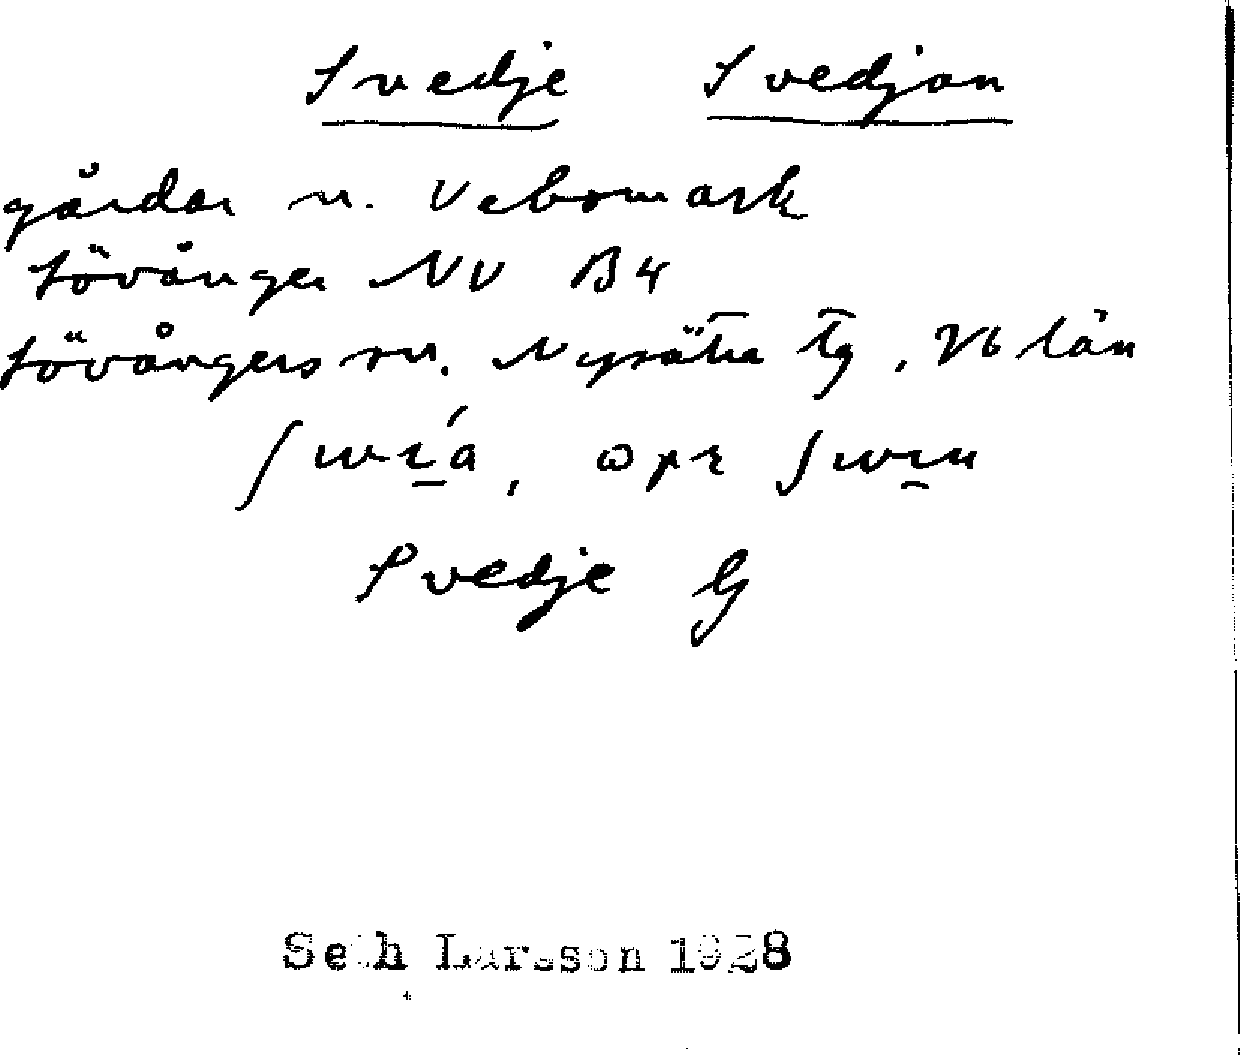 Svedje Svedjan
gårdar n. Vebomark
Lövånger NV B4
Lövångers sn. Nysätra tg, Vb län
Svedje G
Seth Larsson 1928